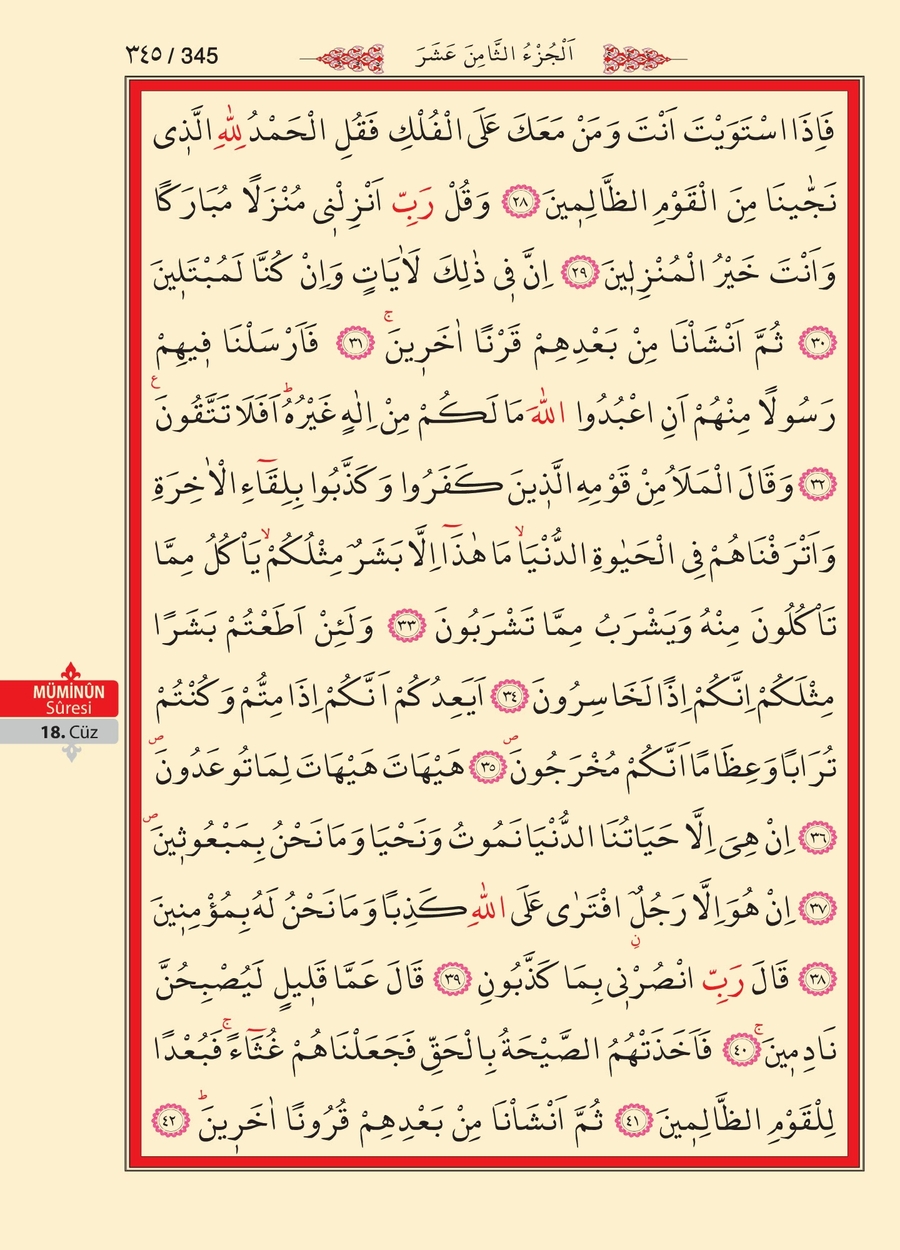 ٣٤٥ / 345
اَلْجُزْءُ الثَّامِنَ عَشَرَ
فَاِذَا اسْتَوَيْتَ اَنْتَ وَمَنْ مَعَكَ عَلَى الْفُلْكِ فَقُلِ الْحَمْدُ لِلّٰهِ الَّذ۪ى
نَجّٰينَا مِنَ الْقَوْمِ الظَّالِم۪ينَ ٢٨ وَقُلْ رَبِّ اَنْزِلْن۪ى مُنْزَلًا مُبَارَكًا
وَاَنْتَ خَيْرُ الْمُنْزِل۪ينَ ٢٩ اِنَّ ف۪ى ذٰلِكَ لَاٰيَاتٍ وَاِنْ كُنَّا لَمُبْتَل۪ينَ
٣٠ ثُمَّ اَنْشَاْنَا مِنْ بَعْدِهِمْ قَرْنًا اٰخَر۪ينَۚ ٣١ فَاَرْسَلْنَا ف۪يهِمْ
رَسُولًا مِنْهُمْ اَنِ اعْبُدُوا اللّٰهَ مَا لَكُمْ مِنْ اِلٰهٍ غَيْرُهُۜ اَفَلَا تَتَّقُونَ ع
٣٢ وَقَالَ الْمَلَاُ مِنْ قَوْمِهِ الَّذ۪ينَ كَفَرُوا وَكَذَّبُوا بِلِقَٓاءِ الْاٰخِرَةِ
وَاَتْرَفْنَاهُمْ فِى الْحَيٰوةِ الدُّنْيَاۙ مَا هٰذَٓا اِلَّا بَشَرٌ مِثْلُكُمْۙ يَاْكُلُ مِمَّا
تَاْكُلُونَ مِنْهُ وَيَشْرَبُ مِمَّا تَشْرَبُونَ ٣٣ وَلَئِنْ اَطَعْتُمْ بَشَرًا
مِثْلَكُمْ اِنَّكُمْ اِذًا لَخَاسِرُونَ ٣٤ اَيَعِدُكُمْ اَنَّكُمْ اِذَا مِتُّمْ وَكُنْتُمْ
تُرَابًا وَعِظَامًا اَنَّكُمْ مُخْرَجُونَۖ ٣٥ هَيْهَاتَ هَيْهَاتَ لِمَا تُوعَدُونَۖ
٣٦ اِنْ هِىَ اِلَّا حَيَاتُنَا الدُّنْيَا نَمُوتُ وَنَحْيَا وَمَا نَحْنُ بِمَبْعُوث۪ينَۖ
٣٧ اِنْ هُوَ اِلَّا رَجُلٌۨ افْتَرٰى عَلَى اللّٰهِ كَذِبًا وَمَا نَحْنُ لَهُ بِمُؤْمِن۪ينَ
٣٨ قَالَ رَبِّ انْصُرْن۪ى بِمَا كَذَّبُونِ ٣٩ قَالَ عَمَّا قَل۪يلٍ لَيُصْبِحُنَّ
نَادِم۪ينَۚ ٤٠ فَاَخَذَتْهُمُ الصَّيْحَةُ بِالْحَقِّ فَجَعَلْنَاهُمْ غُثَٓاءًۚ فَبُعْدًا
لِلْقَوْمِ الظَّالِم۪ينَ ٤١ ثُمَّ اَنْشَاْنَا مِنْ بَعْدِهِمْ قُرُونًا اٰخَر۪ينَۜ ٤٢
MÜMİNÛN
Sûresi
18. Cüz